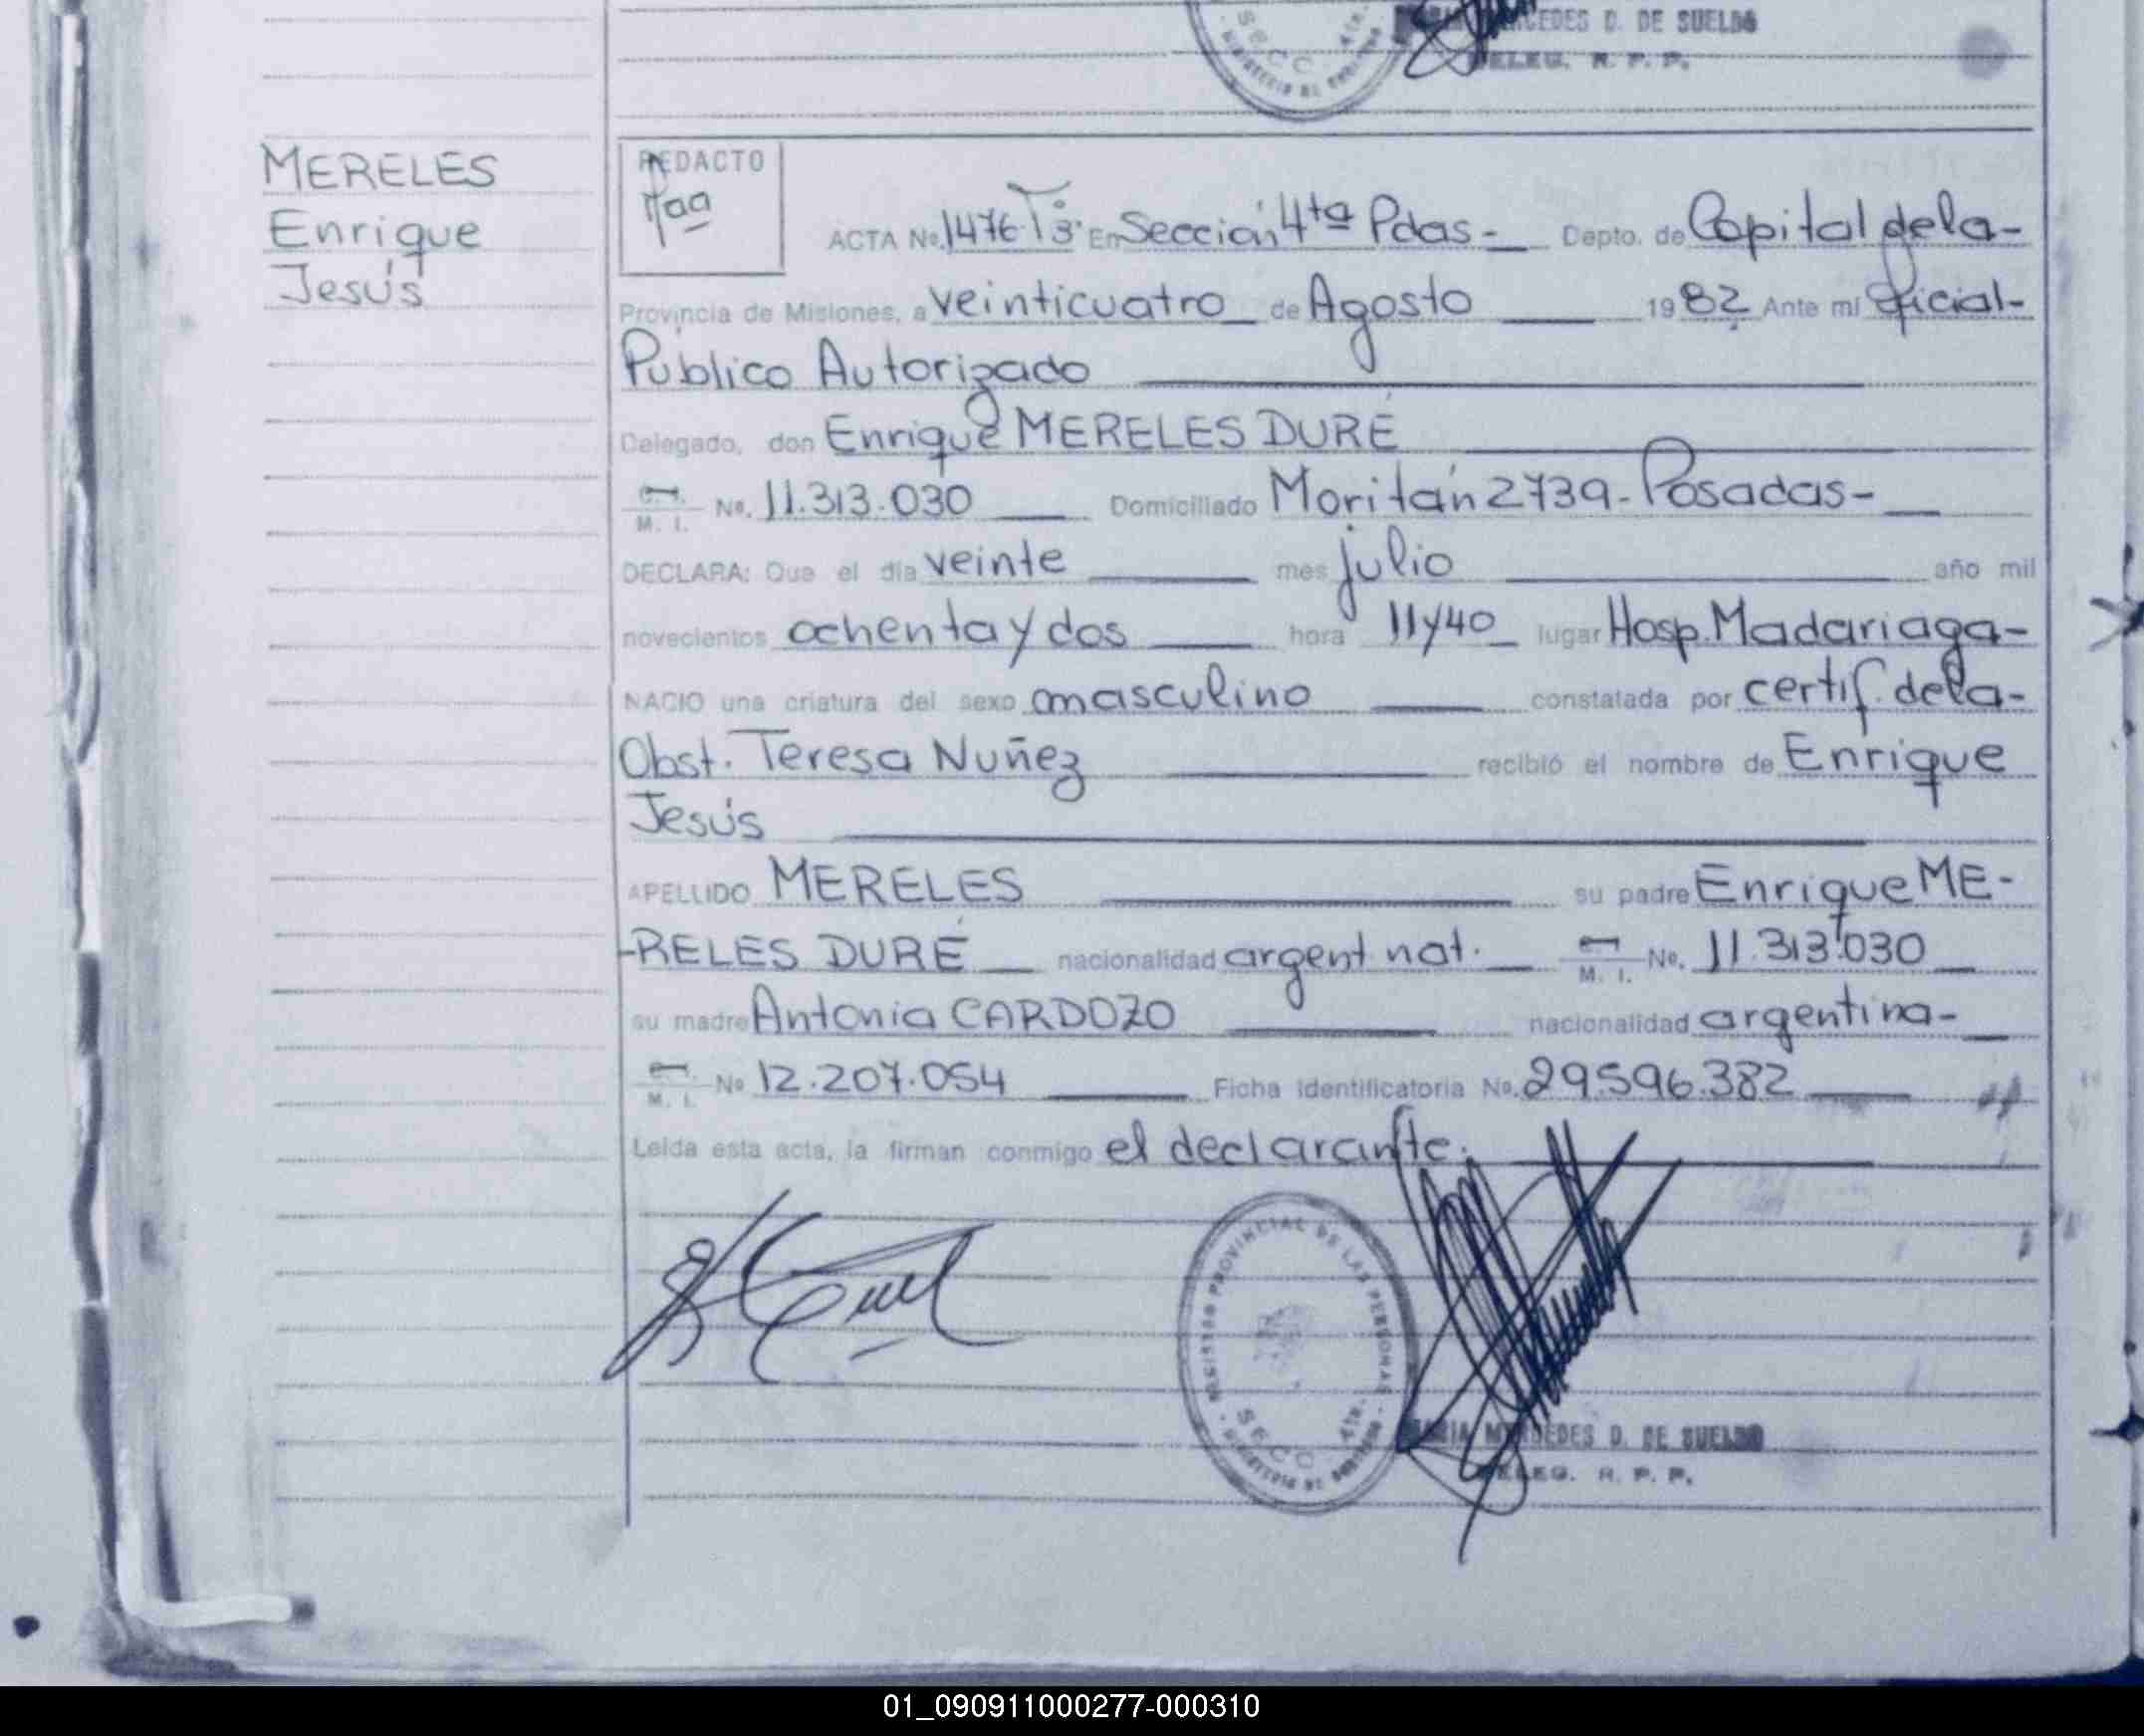 MERCEDES D. DE SUELDO
SECC. 4ta.
DELEG. R. P. P.
MERELES
Enrique
Jesús
REDACTO
ACTA No. 1476 Tº3º En Sección 4ta Pdas - Depto. de Capital de la -
Provincia de Misiones, a veinticuatro de Agosto 1982 Ante mi Oficial -
Público Autorizado
Delegado, don Enrique MERELES DURÉ
M. I. No. 11.313.030 Domiciliado Moritán 2739 - Posadas -
DECLARA: Que el día veinte mes julio año mil
novecientos ochenta y dos hora 11 y 40 lugar Hosp. Madariaga -
NACIO una criatura del sexo masculino constatada por certif. de la -
Obst. Teresa Nuñez recibió el nombre de Enrique
Jesús
APELLIDO MERELES su padre Enrique ME-
-RELES DURÉ nacionalidad argent nat. M. I. No. 11.313.030
su madre Antonia CARDOZO nacionalidad argentina -
M. I. No 12.207.054 Ficha Identificatoria No. 29.596.382
Leída esta acta, la firman conmigo el declarante.
REGISTRO PROVINCIAL DE LAS PERSONAS
SECC. 4ta.
MARÍA MERCEDES D. DE SUELDO
DELEG. R. P. P.
01_090911000277-000310